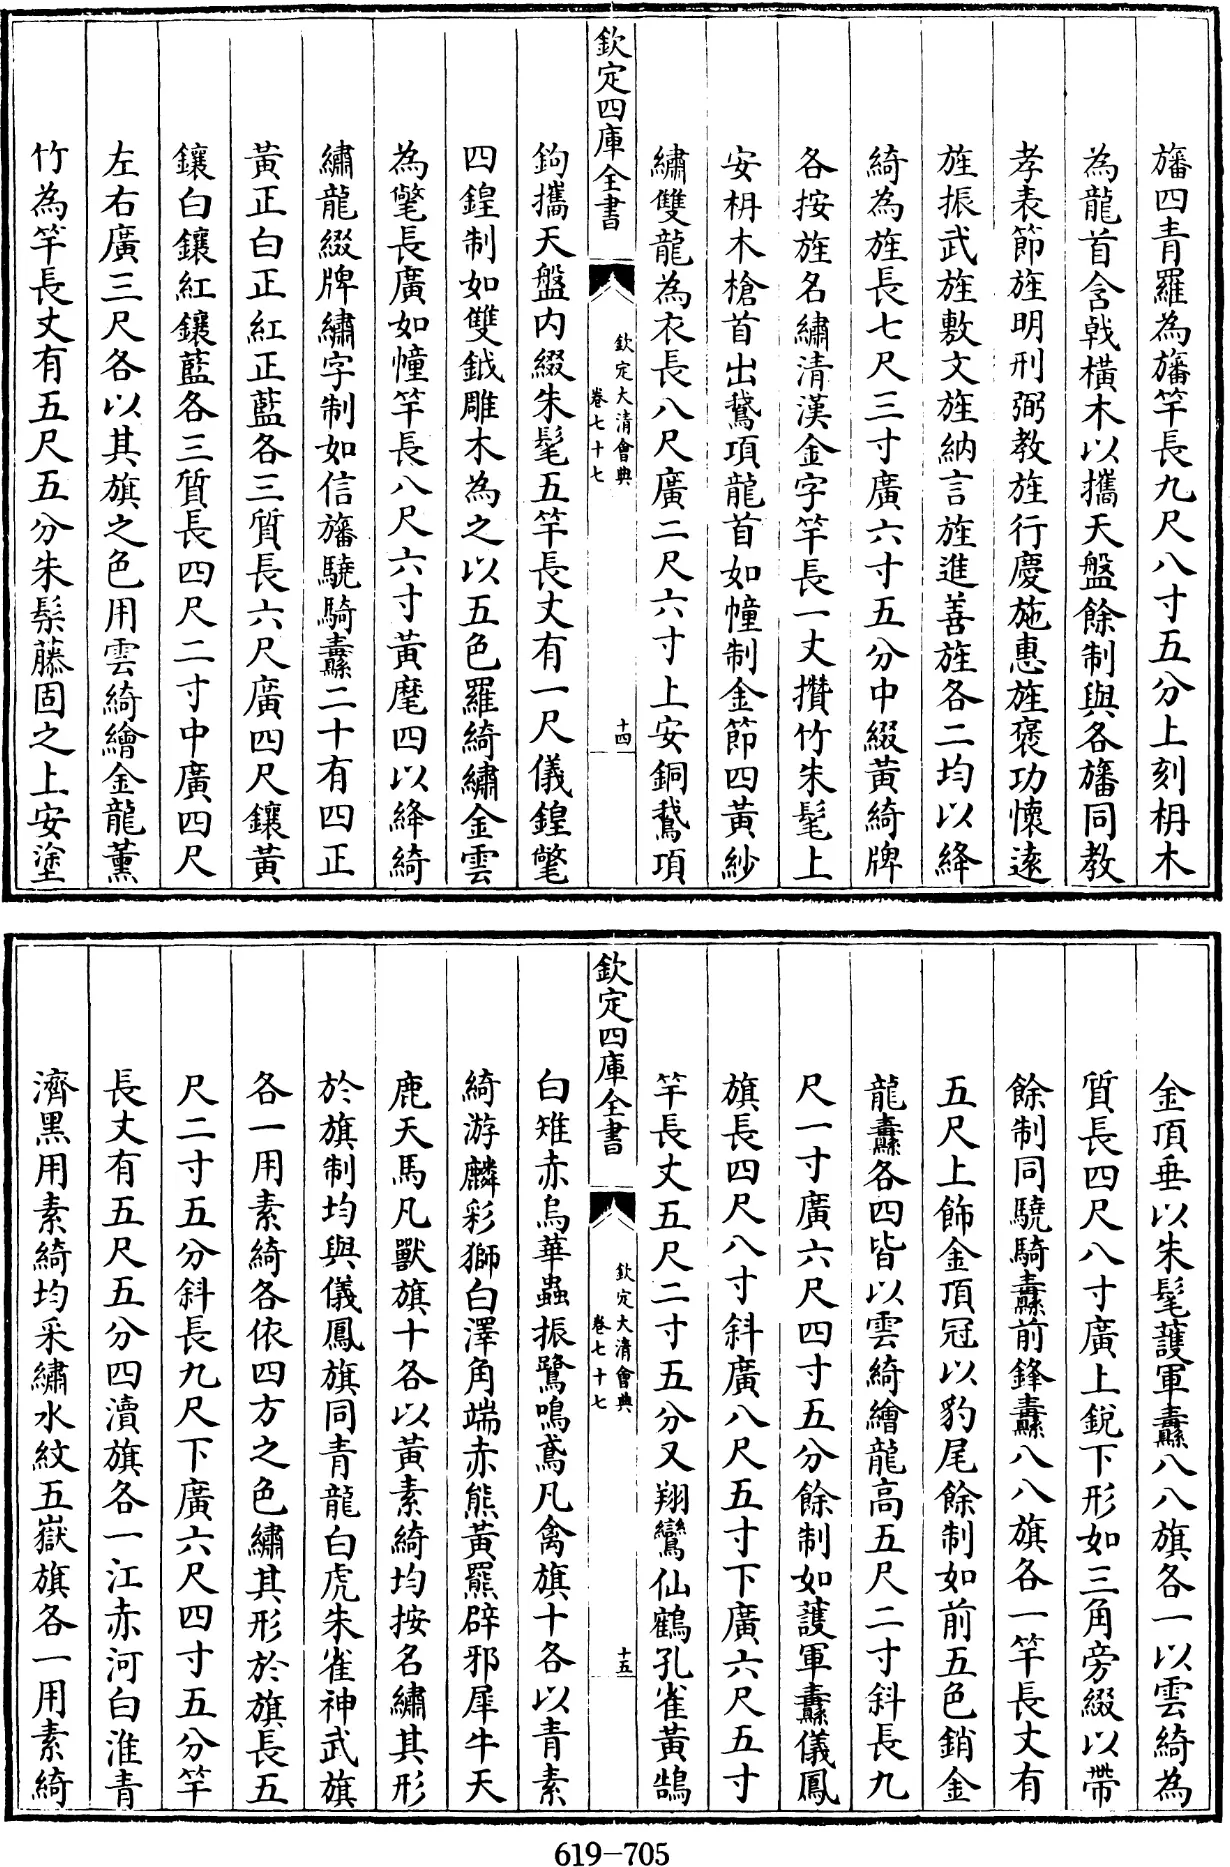 旛四青羅為旛竿長九尺八寸五分上刻枏木
為龍首含戟橫木以攜天盤餘制與各旛同教
孝表節旌明刑弼教旌行慶施惠旌褒功懷遠
旌振武旌敷文旌納言旌進善旌各二均以絳
綺為旌長七尺三寸廣六寸五分中綴黃綺牌
各按旌名繡清漢金字竿長一丈攢竹朱髦上
安枏木槍首出鵞項龍首如幢制金節四黃紗
繡雙龍為衣長八尺廣二尺六寸上安銅鵞項
欽定四庫全書
欽定大清會典
卷七十七
十四
鉤攜天盤内綴朱髦五竿長丈有一尺儀鍠氅
四鍠制如雙鉞雕木為之以五色羅綺繡金雲
為氅長廣如幢竿長八尺六寸黃麾四以絳綺
繡龍綴牌繡字制如信旛驍騎纛二十有四正
黃正白正紅正藍各三質長六尺廣四尺鑲黃
鑲白鑲紅鑲藍各三質長四尺二寸中廣四尺
左右廣三尺各以其旗之色用雲綺繪金龍薰
竹為竿長丈有五尺五分朱髹藤固之上安塗
金頂垂以朱髦護軍纛八八旗各一以雲綺為
質長四尺八寸廣上銳下形如三角旁綴以帶
餘制同驍騎纛前鋒纛八八旗各一竿長丈有
五尺上飾金頂冠以豹尾餘制如前五色銷金
龍纛各四皆以雲綺繪龍高五尺二寸斜長九
尺一寸廣六尺四寸五分餘制如護軍纛儀鳳
旗長四尺八寸斜廣八尺五寸下廣六尺五寸
竿長丈五尺二寸五分又翔鸞仙鶴孔雀黃鵠
欽定四庫全書
欽定大清會典
卷七十七
十五
白雉赤烏華蟲振鷺鳴鳶凡禽旗十各以青素
綺游麟彩獅白澤角端赤熊黃羆辟邪犀牛天
鹿天馬凡獸旗十各以黃素綺均按名繡其形
於旗制均與儀鳳旗同青龍白虎朱雀神武旗
各一用素綺各依四方之色繡其形於旗長五
尺二寸五分斜長九尺下廣六尺四寸五分竿
長丈有五尺五分四瀆旗各一江赤河白淮青
濟黑用素綺均采繡水紋五嶽旗各一用素綺
619-705